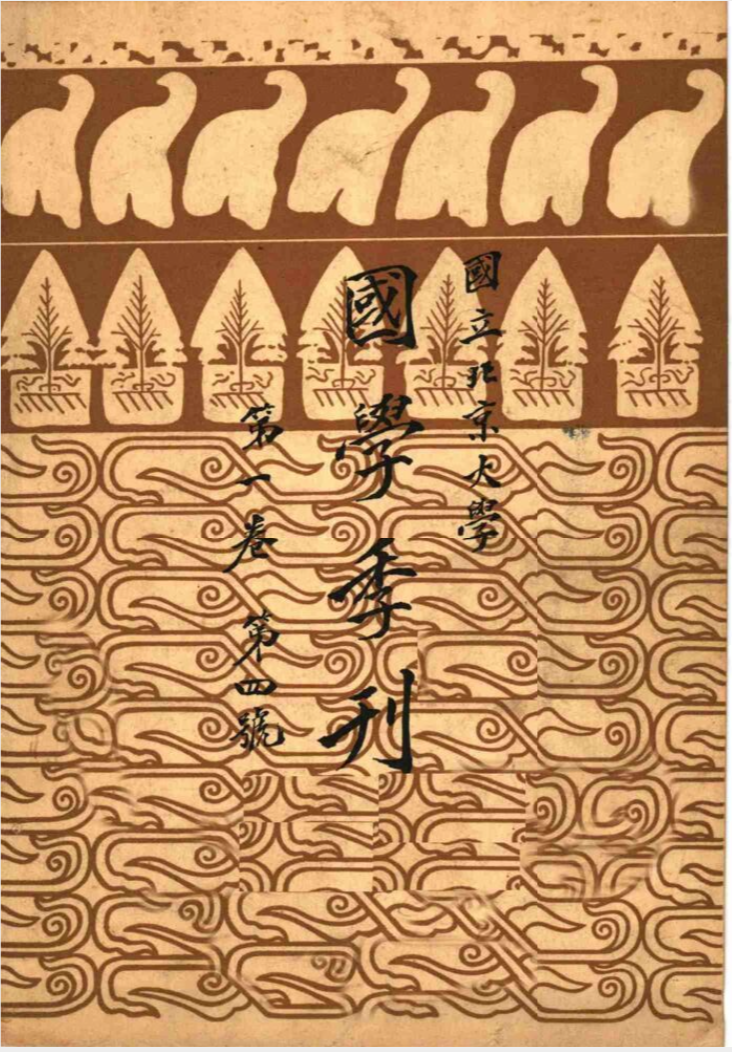 國立北京大學
國學季刊
第一卷 第四號